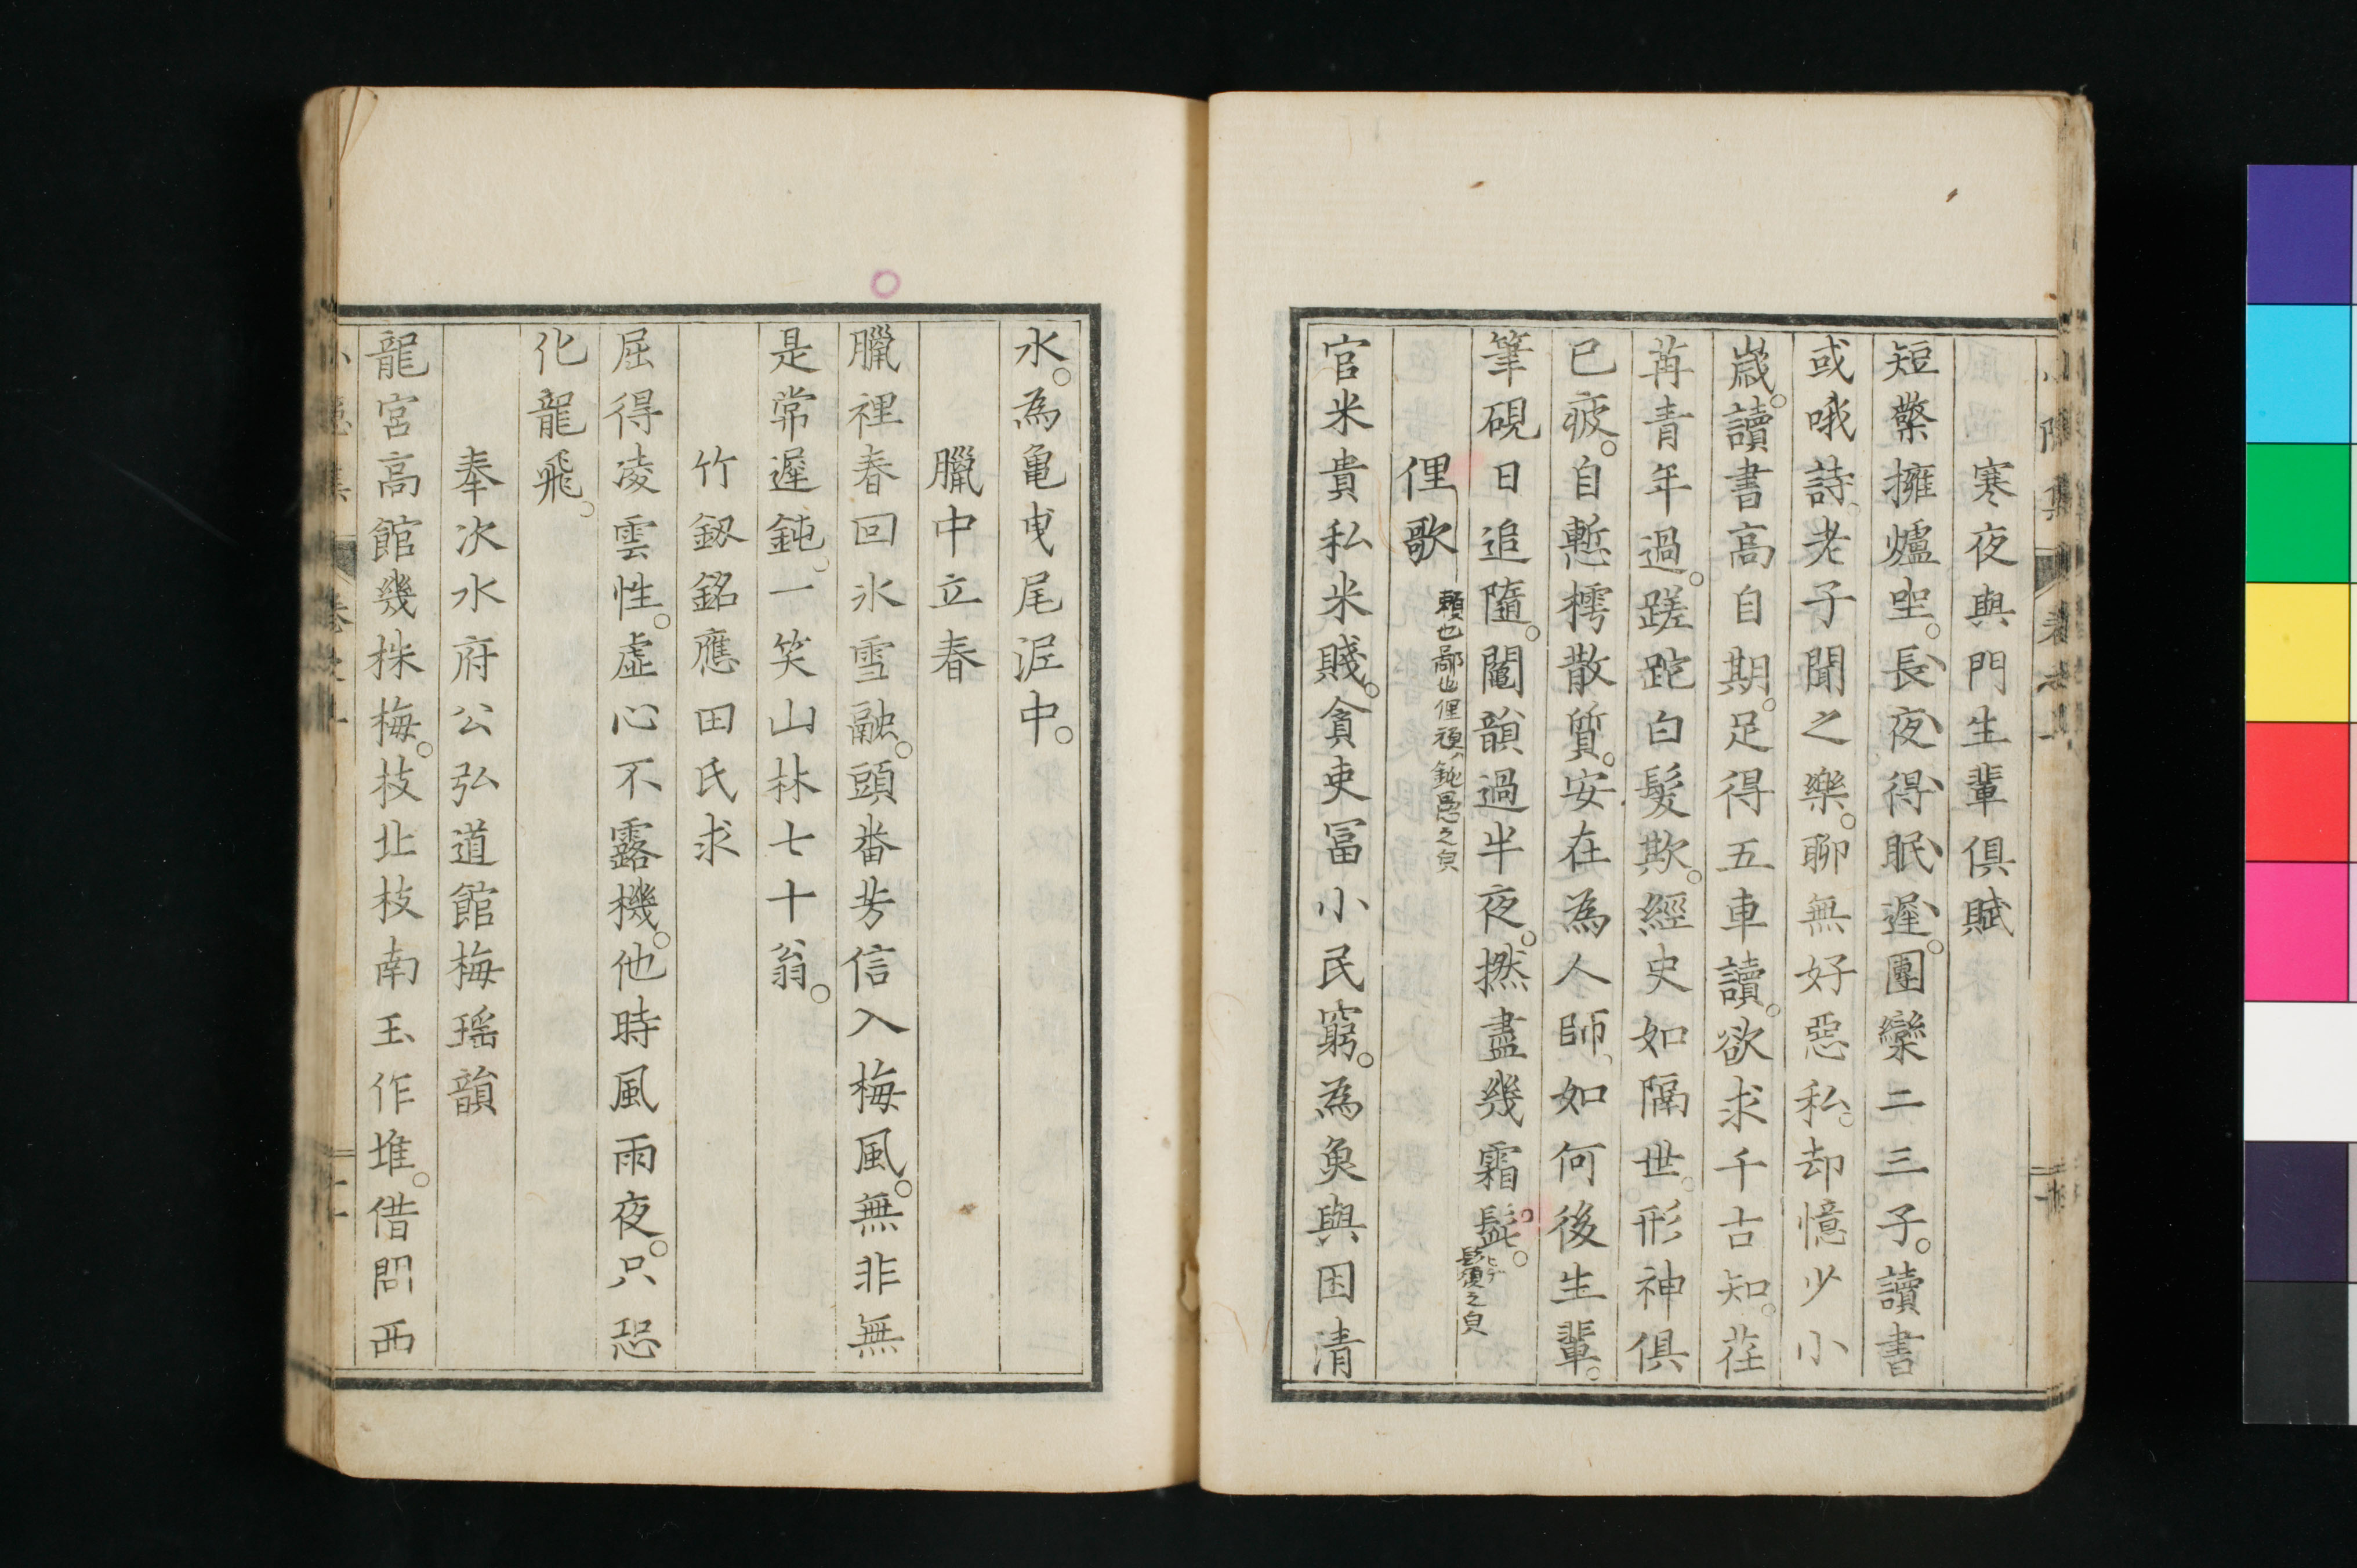 寒夜與門生輩俱賦
短檠擁爐坐。長夜得眠遲。團欒二三子。讀書
或哦詩、老子聞之樂。聊無好惡私。却憶少小
歳。讀書高自期。足得五車讀。欲求千古知。荏
苒青年過。蹉跎白髮欺。經史如隔世。形神俱
已疲。自慙樗散質。安在為人師、如何後生輩。
筆硯日追隨。鬮韻過半夜。撚盡幾霜髭。
髭須之皃
俚歌
頼也鄙也俚頑鈍愚之皃
官米貴私米賤。貪吏冨小民窮。為魚與困清
水。為亀曵尾泥中。
臘中立春
臘裡春回氷雪融。頭番芳信入梅風。無非無
是常遲鈍。一笑山林七十翁。
竹釼銘應田氏求
屈得凌雲性。虚心不露機。他時風雨夜。只恐
化龍飛。
奉次水府公弘道館梅瑶韻
龍宮高館幾株梅。枝北枝南玉作堆。借問西